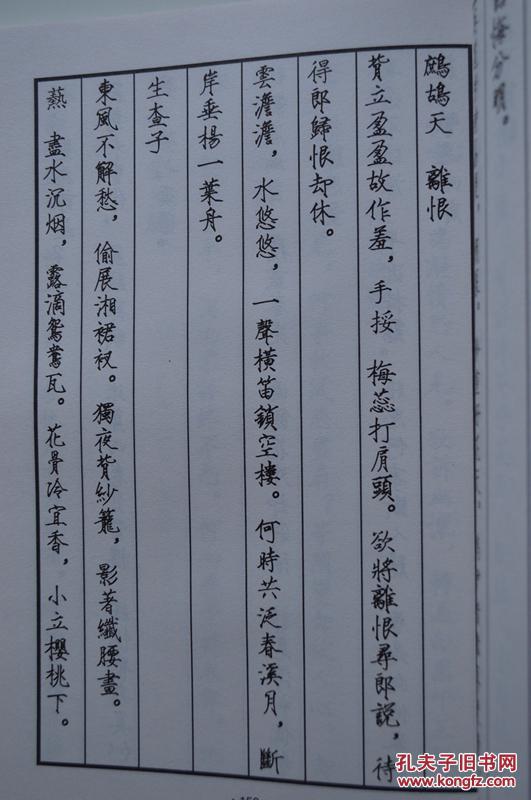 鷓鴣天 離恨
背立盈盈故作羞，手挼 梅蕊打肩頭。欲將離恨尋郎說，待
得郎歸恨却休。
雲澹澹，水悠悠，一聲橫笛鎖空樓。何時共泛春溪月，斷
岸垂楊一葉舟。
生查子
東風不解愁，偷展湘裙衩。獨夜背紗籠，影著纖腰畫。
爇 盡水沉烟，露滴鴛鴦瓦。花骨冷宜香，小立櫻桃下。
孔夫子旧书网
www.kongfz.com